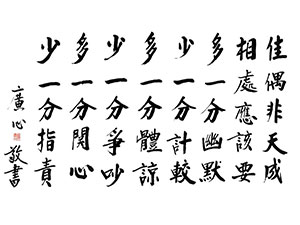 佳偶非天成
相處應該要
多一分幽默
少一分計較
多一分體諒
少一分爭吵
多一分關心
少一分指責
廣心敬書